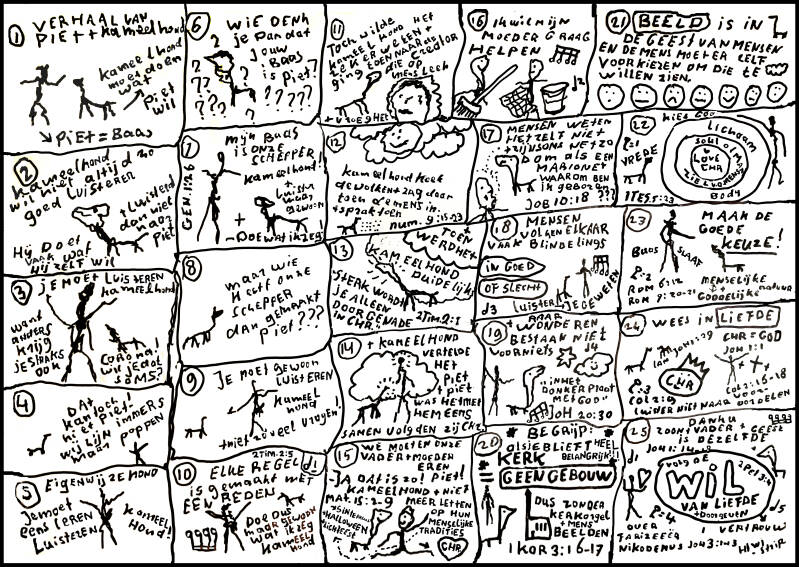 1
VERHAAL VAN
PIET + kameelhond
kameelhond
moet doen
wat
Piet
wil
→ PIET = BAAS
2
kameelhond
wil niet altijd zo
goed luisteren
+ luisterd
dan niet
naar
Piet
Hij DoET
vaak wat
Hij zelf wil
3
je MOET LUISTEREN
kameelhond
want
anders
krijg
je straks
ook
CORONA!
wil je dat
SOMS?
4
DAT
kan toch
niet Piet!
wij zijn immers
maar poppen
5
Eigenwijze HOND
Je moet
eens leren
Luisteren
kameel
Hond!
6
WIE DENK
je Dan dat
jouw
Baas
is Piet?
? ? ? ? ?
7
GEN. 1:26
mijn Baas
is onze
SCHEPPER
kameelhond!
+ luister
maar
gewoon
+
- DOE wat ik zeg
8
maar wie
Heeft onze
SCHEPPER
dan gemaakt
Piet???
9
Je moet gewoon
LUISTEREN
kameel
hond
+ niet zoveel vragen!
10
2 Tim. 2:5
ELKE REGEL d1
is gemaakt met
EEN REDEN
Doe dus
maar gewoon
wat ik zeg
kameel
Hond
11
Toch wilde
kameelhond HET
zeker weten +
ging toen naar de
CREATOR
DIE op
de
mens leek
+ vroeg het
12
kameelhond keek
de wolken + zag daar
toen de mens in
+ sprak toen
num. 9:15-23
13
TOEN
WERD HET
KAMEELHOND
DUIDELIJK
STERK WORDT
je ALLEEN
DOOR GENADE
IN CHR.!
2 Tim. 2:1
14
+ KAMEELHOND
VERTELDE
HET
Piet
+ Piet
was HET met
HEM EENS
SAMEN volgden zij CHR.
15
WE MOETEN ONZE
VADER + MOEDER
EREN
JA DAT IS ZO! PIET!
MAT. 15:2-9
KAMEELHOND + NIET
MEER LETTEN
OP HUN
MENSELIJKE
TRADITIES
HALLOWEEN
CHR
16
Ik wil mijn
MOEDER GRAAG
HELPEN
d2
17
MENSEN WETEN
HET ZELF NIET
+ zij
DOM ALS EEN
MARIONET
WAAROM BEN
ik geboren
JOB 10:18 ???
18
MENSEN
VOLGEN ELKAAR
VAAK BLINDELINGS
IN GOED
OF SLECHT
d3 luister
NAAR
JE GEWETEN
19
+ WONDEREN
BESTAAN NIET
VOOR NIETS
d4
"IN HET
DONKER PLAAT
MET GOD"
JOH 20:30
20
* BEGRIJP: *
alsjeBLIEFT HEEL
* KERK BELANGRIJK!!
= GEEN GEBOUW
DUS ZONDER
KERKORGEL
+ MENS
BEELDEN
1 KOR 3:16-17
21
BEELD is in
DE GEEST VAN MENSEN
EN DE MENS MOET ER ZELF
VOOR KIEZEN OM DIE TE
WILLEN ZIEN.
22
HIER
lichaam
P:1
VREDE
SOUL of MIND
LOVE
CHR
ZIEL
Body
1 TES. 5:23
23
MAAK DE
GOEDE
KEUZE!
BAAS
SLAAF
P:2
ROM 6:12
ROM 7:20-21
MENSELIJKE
+
GODDELIJKE
natuur
24
WEES IN LIEFDE
1 JOH 5:29
CHR = GOD
JOH 1:1
CHR
P:3
COL 2:9
COL 2:16-18
LUISTER NIET NAAR VOOR-
OORDELEN
25
DANKU
ZOON + VADER + GEEST
is DEZELFDE
JOH 1:14
volg de
WIL
VAN LIEFDE
+ Doorgeven
2 Pet 3:9
d5
P:4
OVER
FARIZEEËR
NIKODEMUS JOH 3:1-13
VERTROUW